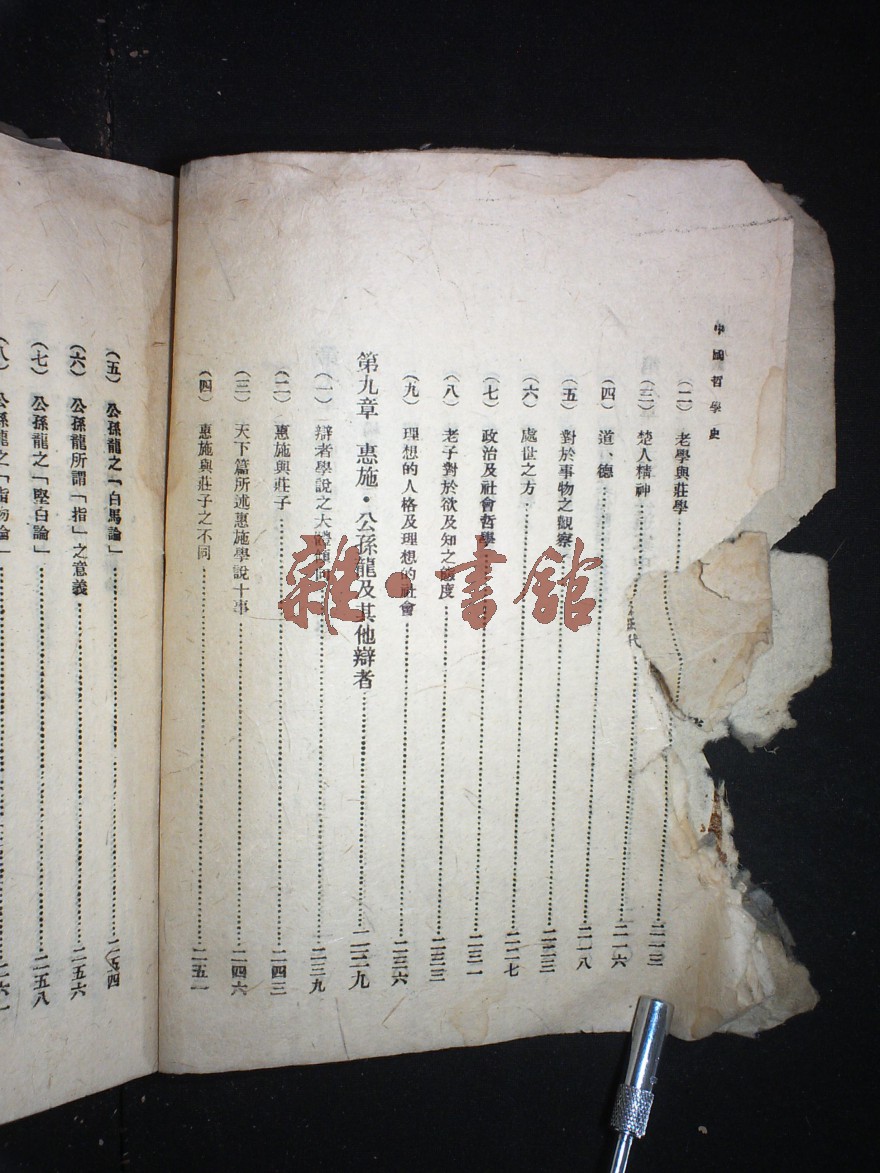 中國哲學史
(二) 老學與莊學……二一三
(三) 楚人精神……二一六
(四) 道、德……二一八
(五) 對於事物之觀察……二二三
(六) 處世之方……二二七
(七) 政治及社會哲學……二三一
(八) 老子對於欲及知之態度……二三三
(九) 理想的人格及理想的社會……二三六
第九章 惠施・公孫龍及其他辯者……二三九
(一) 辯者學說之大體傾向……二三九
(二) 惠施與莊子……二四三
(三) 天下篇所述惠施學說十事……二四六
(四) 惠施與莊子之不同……二五一
(五) 公孫龍之「白馬論」……二五四
(六) 公孫龍所謂「指」之意義……二五六
(七) 公孫龍之「堅白論」……二五八
(八) 公孫龍之「指物論」……二六一
代
雜・書館